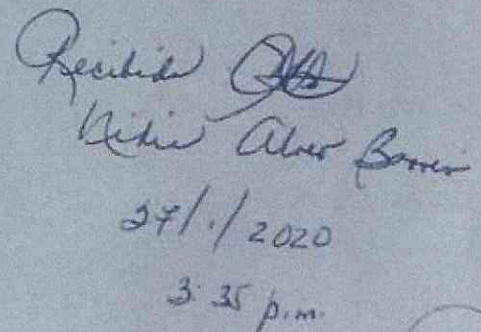 Recibido
Nidia Alver Barren
27/1/2020
3:35 p.m.